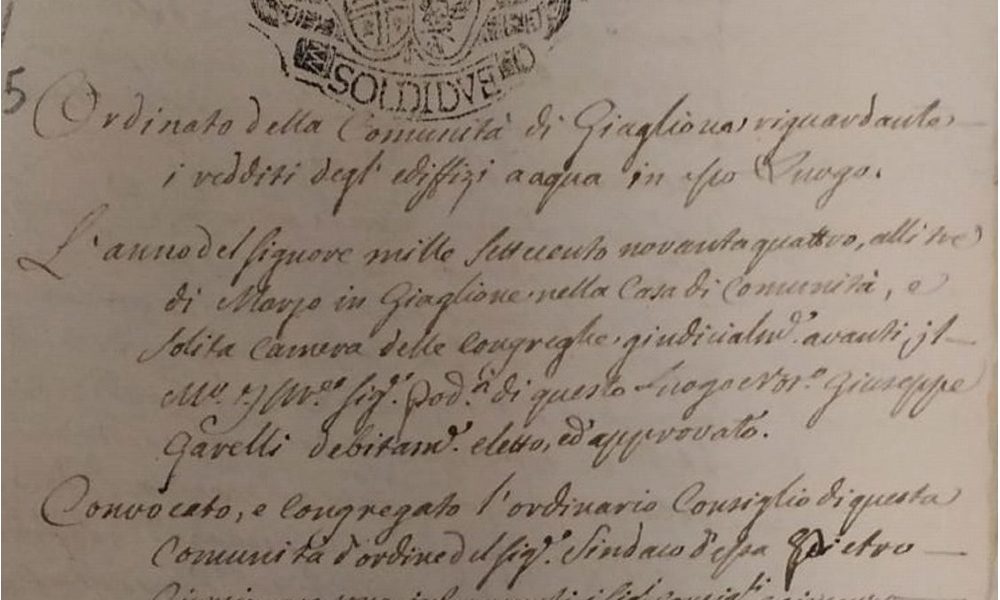 SOLDI DVE
5
Ordinato della Comunità di Giaglione riguardante
i redditi degl' ediffizi a aqua in esso Luogo.
L'anno del Signore mille settecento novanta quattro, alli tre
di Marzo in Giaglione nella Casa di Comunità, e
solita camera delle congreghe, giudicialm.e avanti, il
Sig.r Pod.à di questo Luogo Not.o Giuseppe
Garelli debitam.e eletto, ed approvato.
Convocato, e congregato l'ordinario Consiglio di questa
Comunità d'ordine del Sig.r Sindaco d'essa Pietro